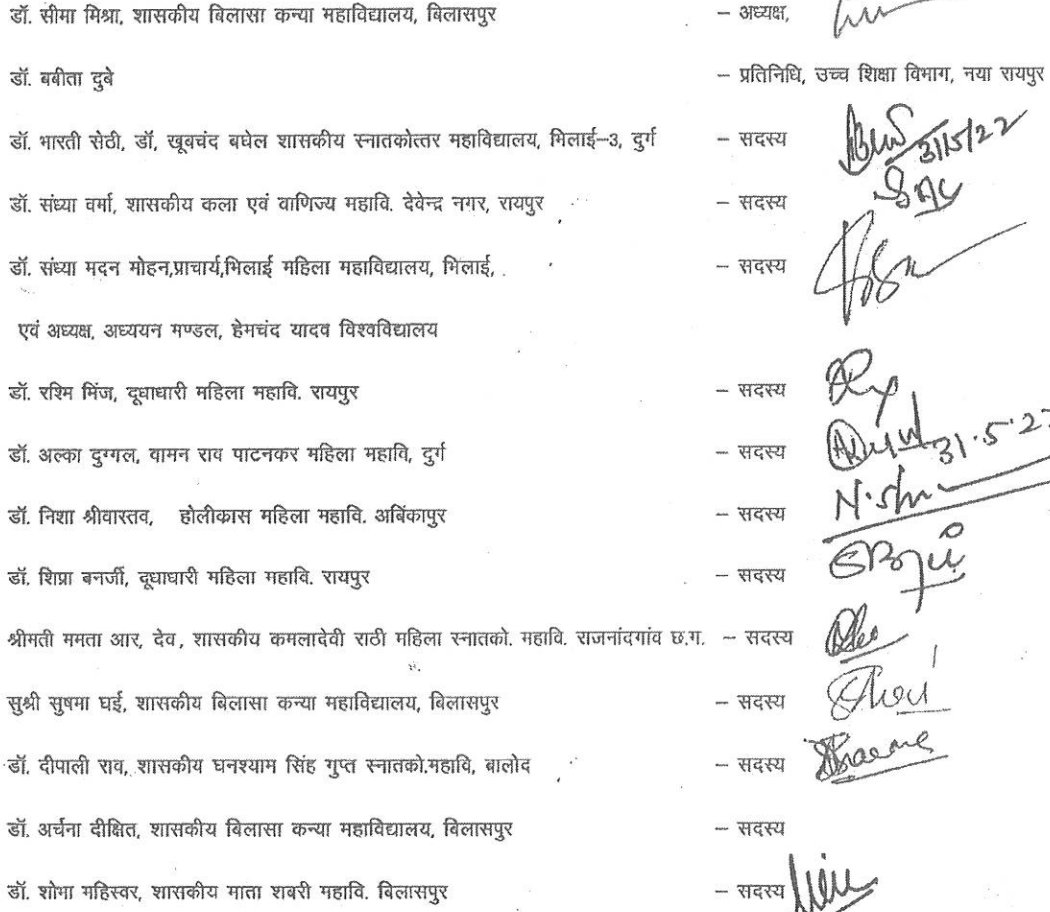 डॉ. सीमा मिश्रा, शासकीय बिलासा कन्या महाविद्यालय, बिलासपुर – अध्यक्ष,
डॉ. बबीता दुबे – प्रतिनिधि, उच्च शिक्षा विभाग, नया रायपुर
डॉ. भारती सेठी, डॉ, खूबचंद बघेल शासकीय स्नातकोत्तर महाविद्यालय, भिलाई–3, दुर्ग – सदस्य 31/5/22
डॉ. संध्या वर्मा, शासकीय कला एवं वाणिज्य महावि. देवेन्द्र नगर, रायपुर – सदस्य
डॉ. संध्या मदन मोहन,प्राचार्य,भिलाई महिला महाविद्यालय, भिलाई, – सदस्य
एवं अध्यक्ष, अध्ययन मण्डल, हेमचंद यादव विश्वविद्यालय
डॉ. रश्मि मिंज, दूधाधारी महिला महावि. रायपुर – सदस्य
डॉ. अल्का दुग्गल, वामन राव पाटनकर महिला महावि, दुर्ग – सदस्य 31.5.2
डॉ. निशा श्रीवास्तव, होलीकास महिला महावि. अबिंकापुर – सदस्य
डॉ. शिप्रा बनर्जी, दूधाधारी महिला महावि. रायपुर – सदस्य
श्रीमती ममता आर, देव, शासकीय कमलादेवी राठी महिला स्नातको. महावि. राजनांदगांव छ.ग. – सदस्य
सुश्री सुषमा घई, शासकीय बिलासा कन्या महाविद्यालय, बिलासपुर – सदस्य
डॉ. दीपाली राव, शासकीय घनश्याम सिंह गुप्त स्नातको.महावि, बालोद – सदस्य
डॉ. अर्चना दीक्षित, शासकीय बिलासा कन्या महाविद्यालय, बिलासपुर – सदस्य
डॉ. शोभा महिस्वर, शासकीय माता शबरी महावि. बिलासपुर – सदस्य